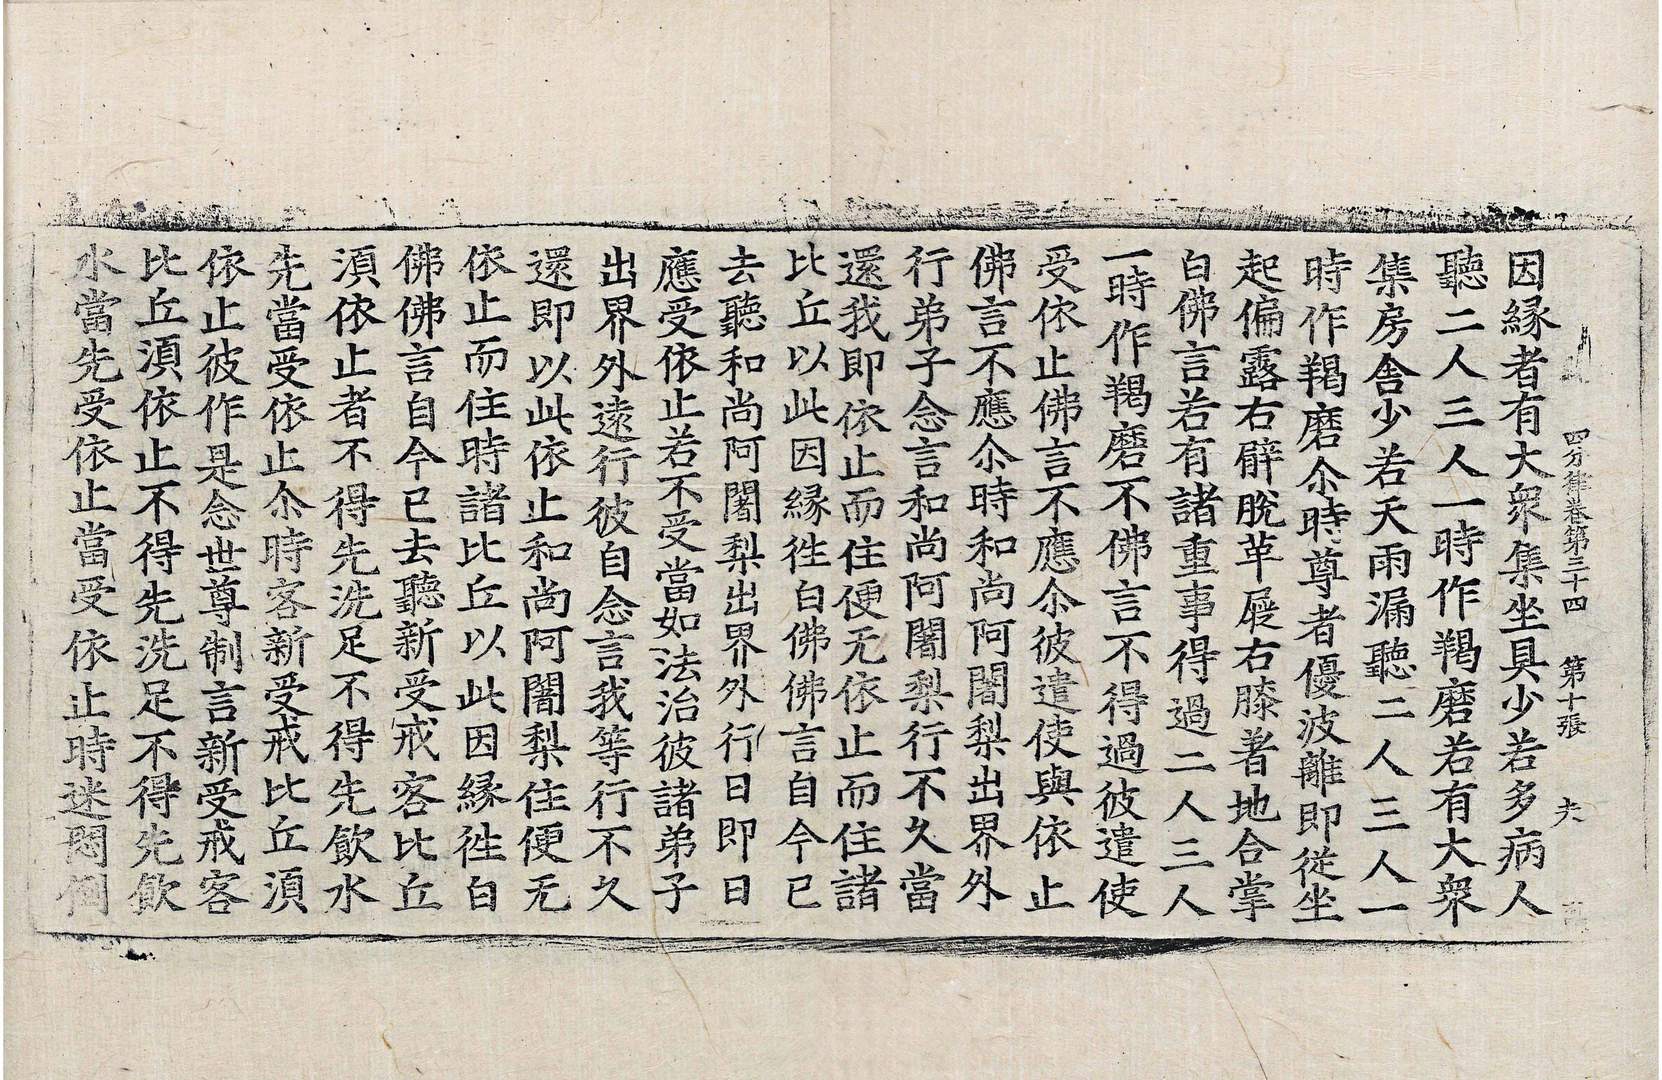 四分律卷第三十四 第十張 夫
因縁者有大衆集坐具少若多病人
聽二人三人一時作羯磨若有大衆
集房舎少若天雨漏聽二人三人一
時作羯磨尒時尊者優波離即從坐
起偏露右臂脫革屣右膝著地合掌
白佛言若有諸重事得過二人三人
一時作羯磨不佛言不得過彼遣使
受依止佛言不應尒彼遣使與依止
佛言不應尒時和尚阿闍梨出界外
行弟子念言和尚阿闍梨行不久當
還我即依止而住便无依止而住諸
比丘以此因縁徃白佛佛言自今已
去聽和尚阿闍梨出界外行日即日
應受依止若不受當如法治彼諸弟子
出界外遠行彼自念言我等行不久
還即以此依止和尚阿闍梨住便无
依止而住時諸比丘以此因縁徃白
佛佛言自今已去聽新受戒客比丘
湏依止者不得先洗足不得先飲水
先當受依止尒時客新受戒比丘湏
依止彼作是念世尊制言新受戒客
比丘湏依止不得先洗足不得先飲
水當先受依止當受依止時迷悶倒